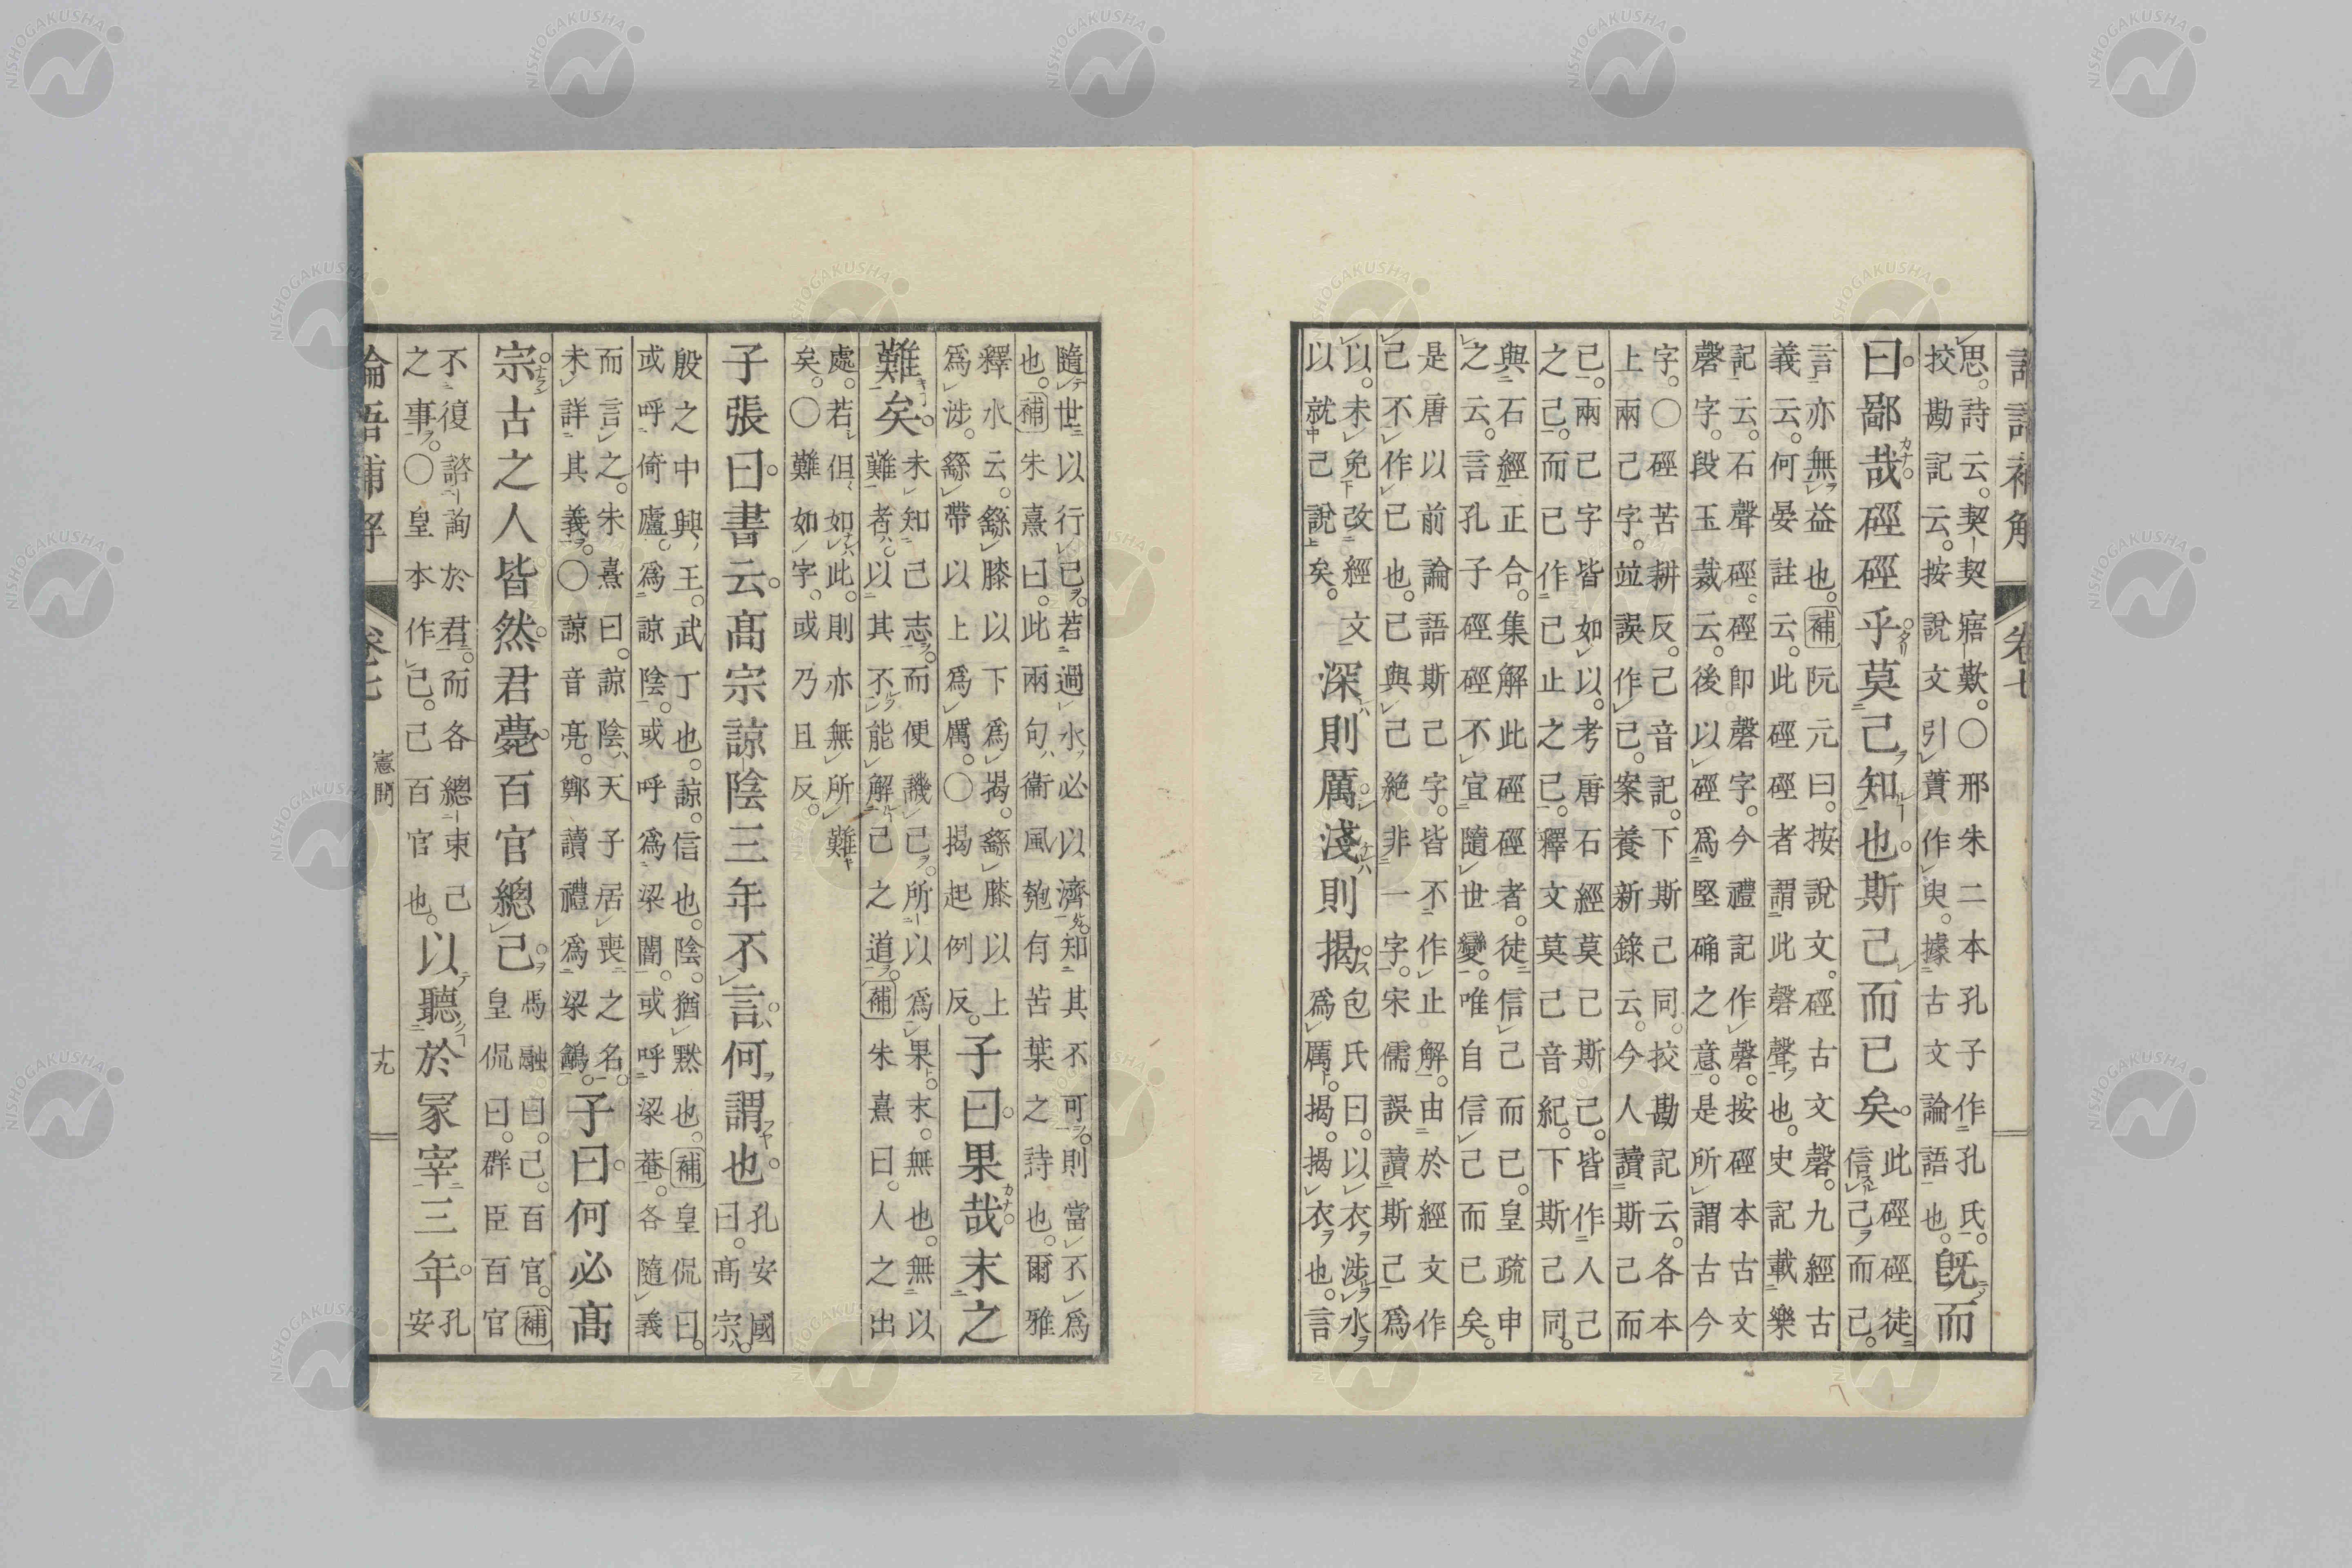 論語補解 卷七
思。詩云。契契寤歎。〇邢朱二本孔子作孔氏。
挍勘記云。按說文引蕢作臾。據古文論語也。
旣而
曰。鄙哉。硜硜乎。莫己知也。斯己而已矣。
此硜硜徒
信己而己。
言亦無益也。補阮元曰。按說文。硜古文磬。九經古
義云。何晏註云。此硜硜者謂此磬聲也。史記載樂
記云。石聲硜硜卽磬字。今禮記作磬。按硜本古文
磬字。段玉裁云。後以硜爲堅确之意。是所謂古今
字。〇硜苦耕反。己音記。下斯己同。挍勘記云。各本
上兩己字。竝誤作已。案養新錄云。今人讀斯己而
已。兩己字皆如以。考唐石經莫己斯己。皆作人己
之己。而已作已止之已。釋文莫己音紀。下斯己同。
與石經正合。集解此硜硜者。徒信己而已。皇疏申
之云。言孔子硜硜不宜隨世變。唯自信己而已矣。
是唐以前論語斯己字。皆不作止解。由於經文作
己不作已也。己與已絕非一字。宋儒誤讀斯己爲
以。未免改經文
以就己說矣。
深則厲。淺則揭。
包氏曰。以衣涉水
爲厲。揭。揭衣也。言
隨世以行己。若過水必以濟。知其不可。則當不爲
也。補朱熹曰。此兩句。衞風匏有苦葉之詩也。爾雅
釋水云。繇膝以下爲揭。繇膝以上
爲涉。繇帶以上爲厲。〇揭起例反。
子曰。果哉。末之
難矣。
未知己志。而便譏己。所以爲果。末。無也。無以
難者。以其不能解己之道。補朱熹曰。人之出
處。若但如此。則亦無所難
矣。〇難如字。或乃且反。
子張曰。書云。高宗諒陰三年不言。何謂也。
孔安國
曰。高宗。
殷之中興王。武丁也。諒。信也。陰。猶默也。補皇侃曰。
或呼倚廬。爲諒陰。或呼爲梁闇。或呼梁菴。各隨義
而言之。朱熹曰。諒陰。天子居喪之名。
未詳其義。〇諒音亮。鄭讀禮爲梁鵪。
子曰。何必高
宗。古之人皆然。君薨。百官總己。
馬融曰。己。百官。補
皇侃曰。群臣百官
不復諮詢於君。而各總束己
之事。〇皇本作已。己百官也。
以聽於冢宰三年。
孔
安
論語補解 卷七 憲問 十九